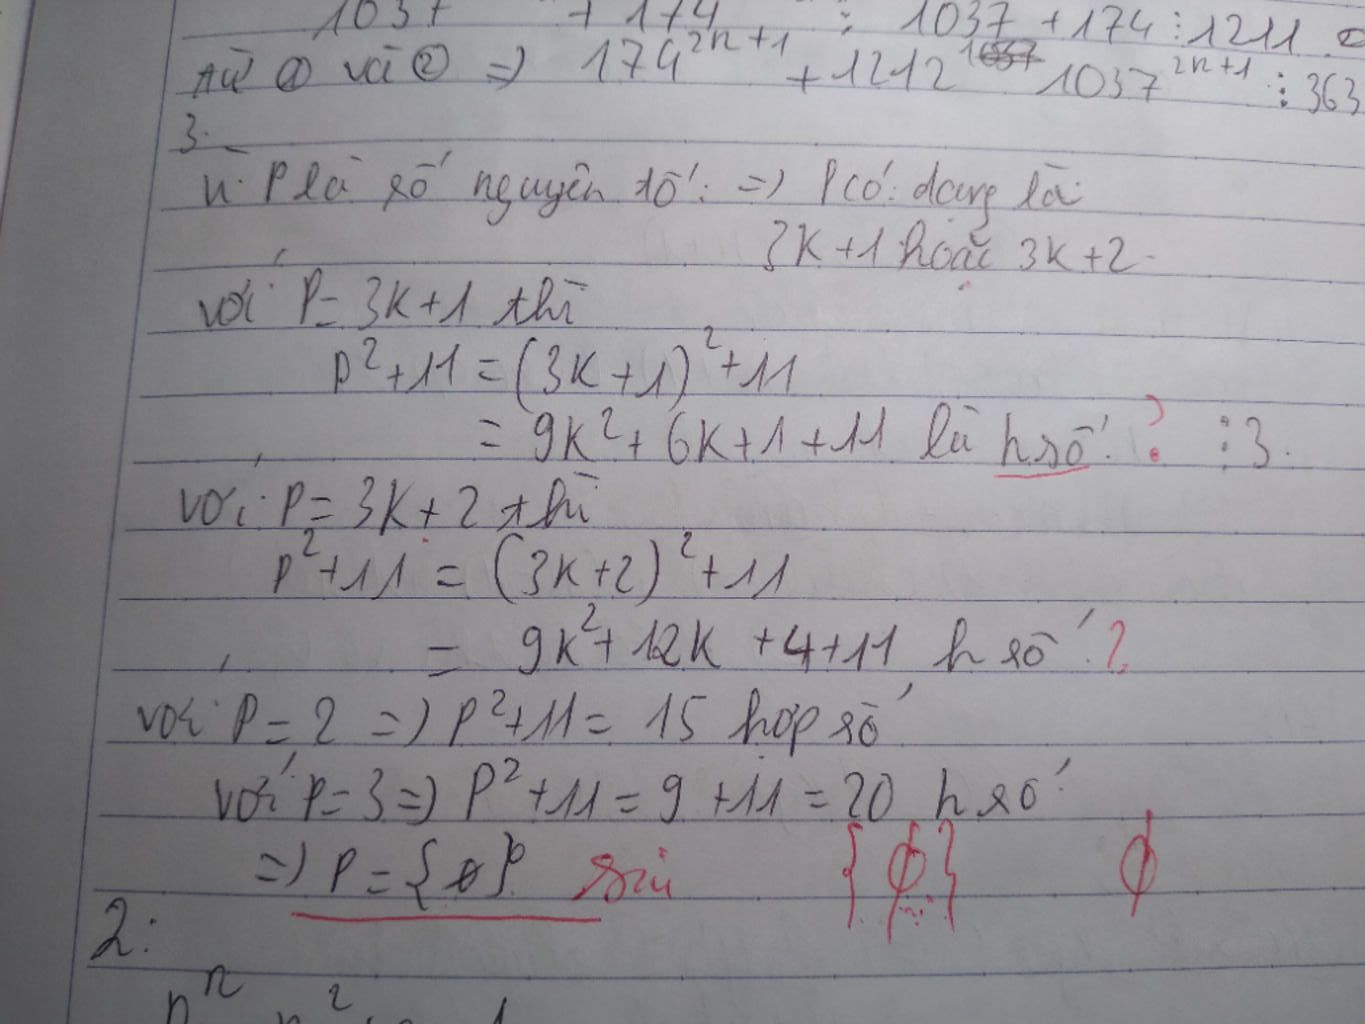 1037 + 174 ⋮ 1037 + 174 ⋮ 1211
từ ① và ② => 174^{2n+1} + 1212 1037^{2n+1} ⋮ 363
3.
Vì P là số nguyên tố: => P có dạng là
3K+1 hoặc 3K+2.
với P = 3K+1 thì
p²+11 = (3K+1)² + 11
= 9K² + 6K + 1 + 11 là h số ? ⋮ 3.
với P = 3K + 2 thì
p² + 11 = (3K+2)² + 11
= 9K² + 12K + 4 + 11 h số ?
với P = 2 => P² + 11 = 15 hợp số
với P = 3 => P² + 11 = 9 + 11 = 20 h số
=> P = {ϕ} sai {ϕ} ϕ
2: